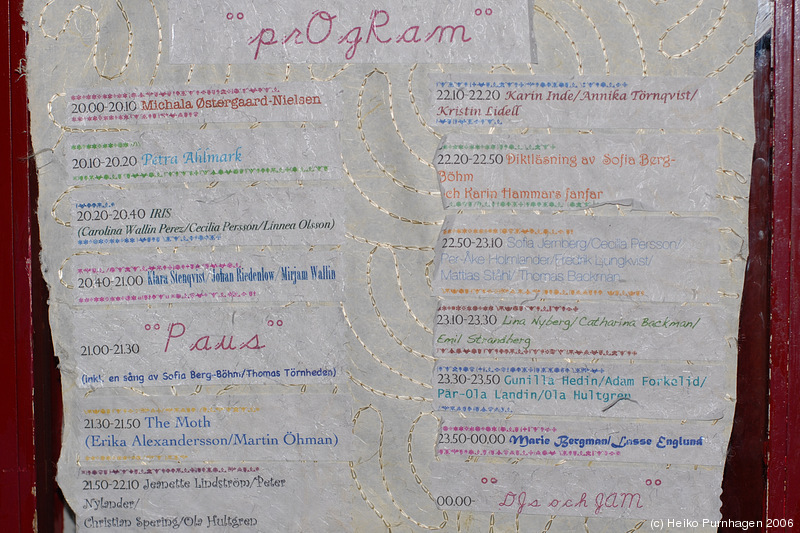 "prOgRam"
20.00-20.10 Michala Østergaard-Nielsen
20.10-20.20 Petra Ahlmark
20.20-20.40 IRIS
(Carolina Wallin Perez/Cecilia Persson/Linnea Olsson)
20.40-21.00 Klara Stenqvist/Johan Riedenlow/Mirjam Wallin
21.00-21.30 "Paus"
(inkl. en sång av Sofia Berg-Böhm/Thomas Törnheden)
21.30-21.50 The Moth
(Erika Alexandersson/Martin Öhman)
21.50-22.10 Jeanette Lindström/Peter
Nylander/
Christian Spering/Ola Hultgren
22.10-22.20 Karin Inde/Annika Törnqvist/
Kristin Lidell
22.20-22.50 Diktläsning av Sofia Berg-
Böhm
och Karin Hammars fanfar
22.50-23.10 Sofia Jernberg/Cecilia Persson/
Per-Åke Holmlander/Fredrik Ljungkvist/
Mattias Ståhl/Thomas Backman
23.10-23.30 Lina Nyberg/Catharina Backman/
Emil Strandberg
23.30-23.50 Gunilla Hedin/Adam Forkelid/
Pär-Ola Landin/Ola Hultgren
23.50-00.00 Marie Bergman/Lasse Englund
00.00- "DJs och JAM"
(c) Heiko Purnhagen 2006